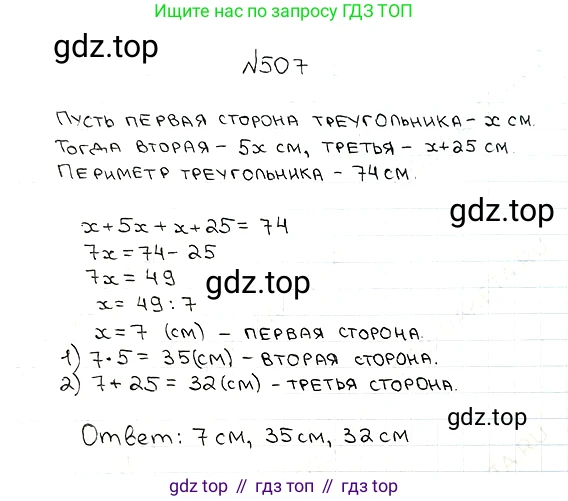 Ищите по запросу ГДЗ ТОП
gdz.top
№507
Пусть первая сторона треугольника - x см.
Тогда вторая - 5x см, третья - x+25 см.
Периметр треугольника - 74 см.
gdz.top
x+5x+x+25=74
7x=74-25
7x=49
gdz.top
x=49:7
x=7 (см) - первая сторона.
1) 7·5=35(см) - вторая сторона.
2) 7+25=32(см) - третья сторона.
gdz.top
Ответ: 7см, 35см, 32см
gdz.top // гдз.топ // гдз топ